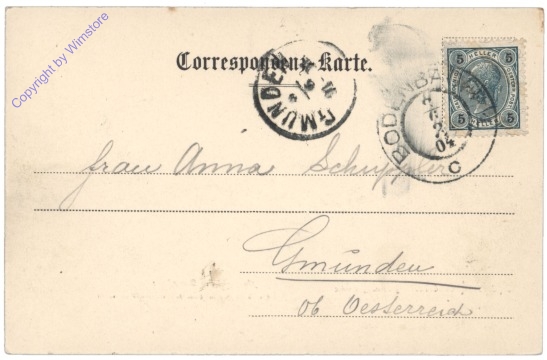 Copyright by Wimstore
Correspondenz-Karte.
GMUNDEN
BODENBACH
04
C
5 5
HELLER HELLER
5 5
Frau Anna Schuppler
Gmünden
ob Oesterreich